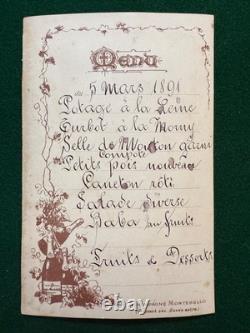 Menu
du 5 Mars 1891
Potage à la Reine
Turbot à la Morny
Selle de Mouton garni
Compote
Petits pois nouveau
Caneton rôti
Salade diverse
Baba au fruits
Fruits & Desserts
CHAMPAGNE MONTEBELLO